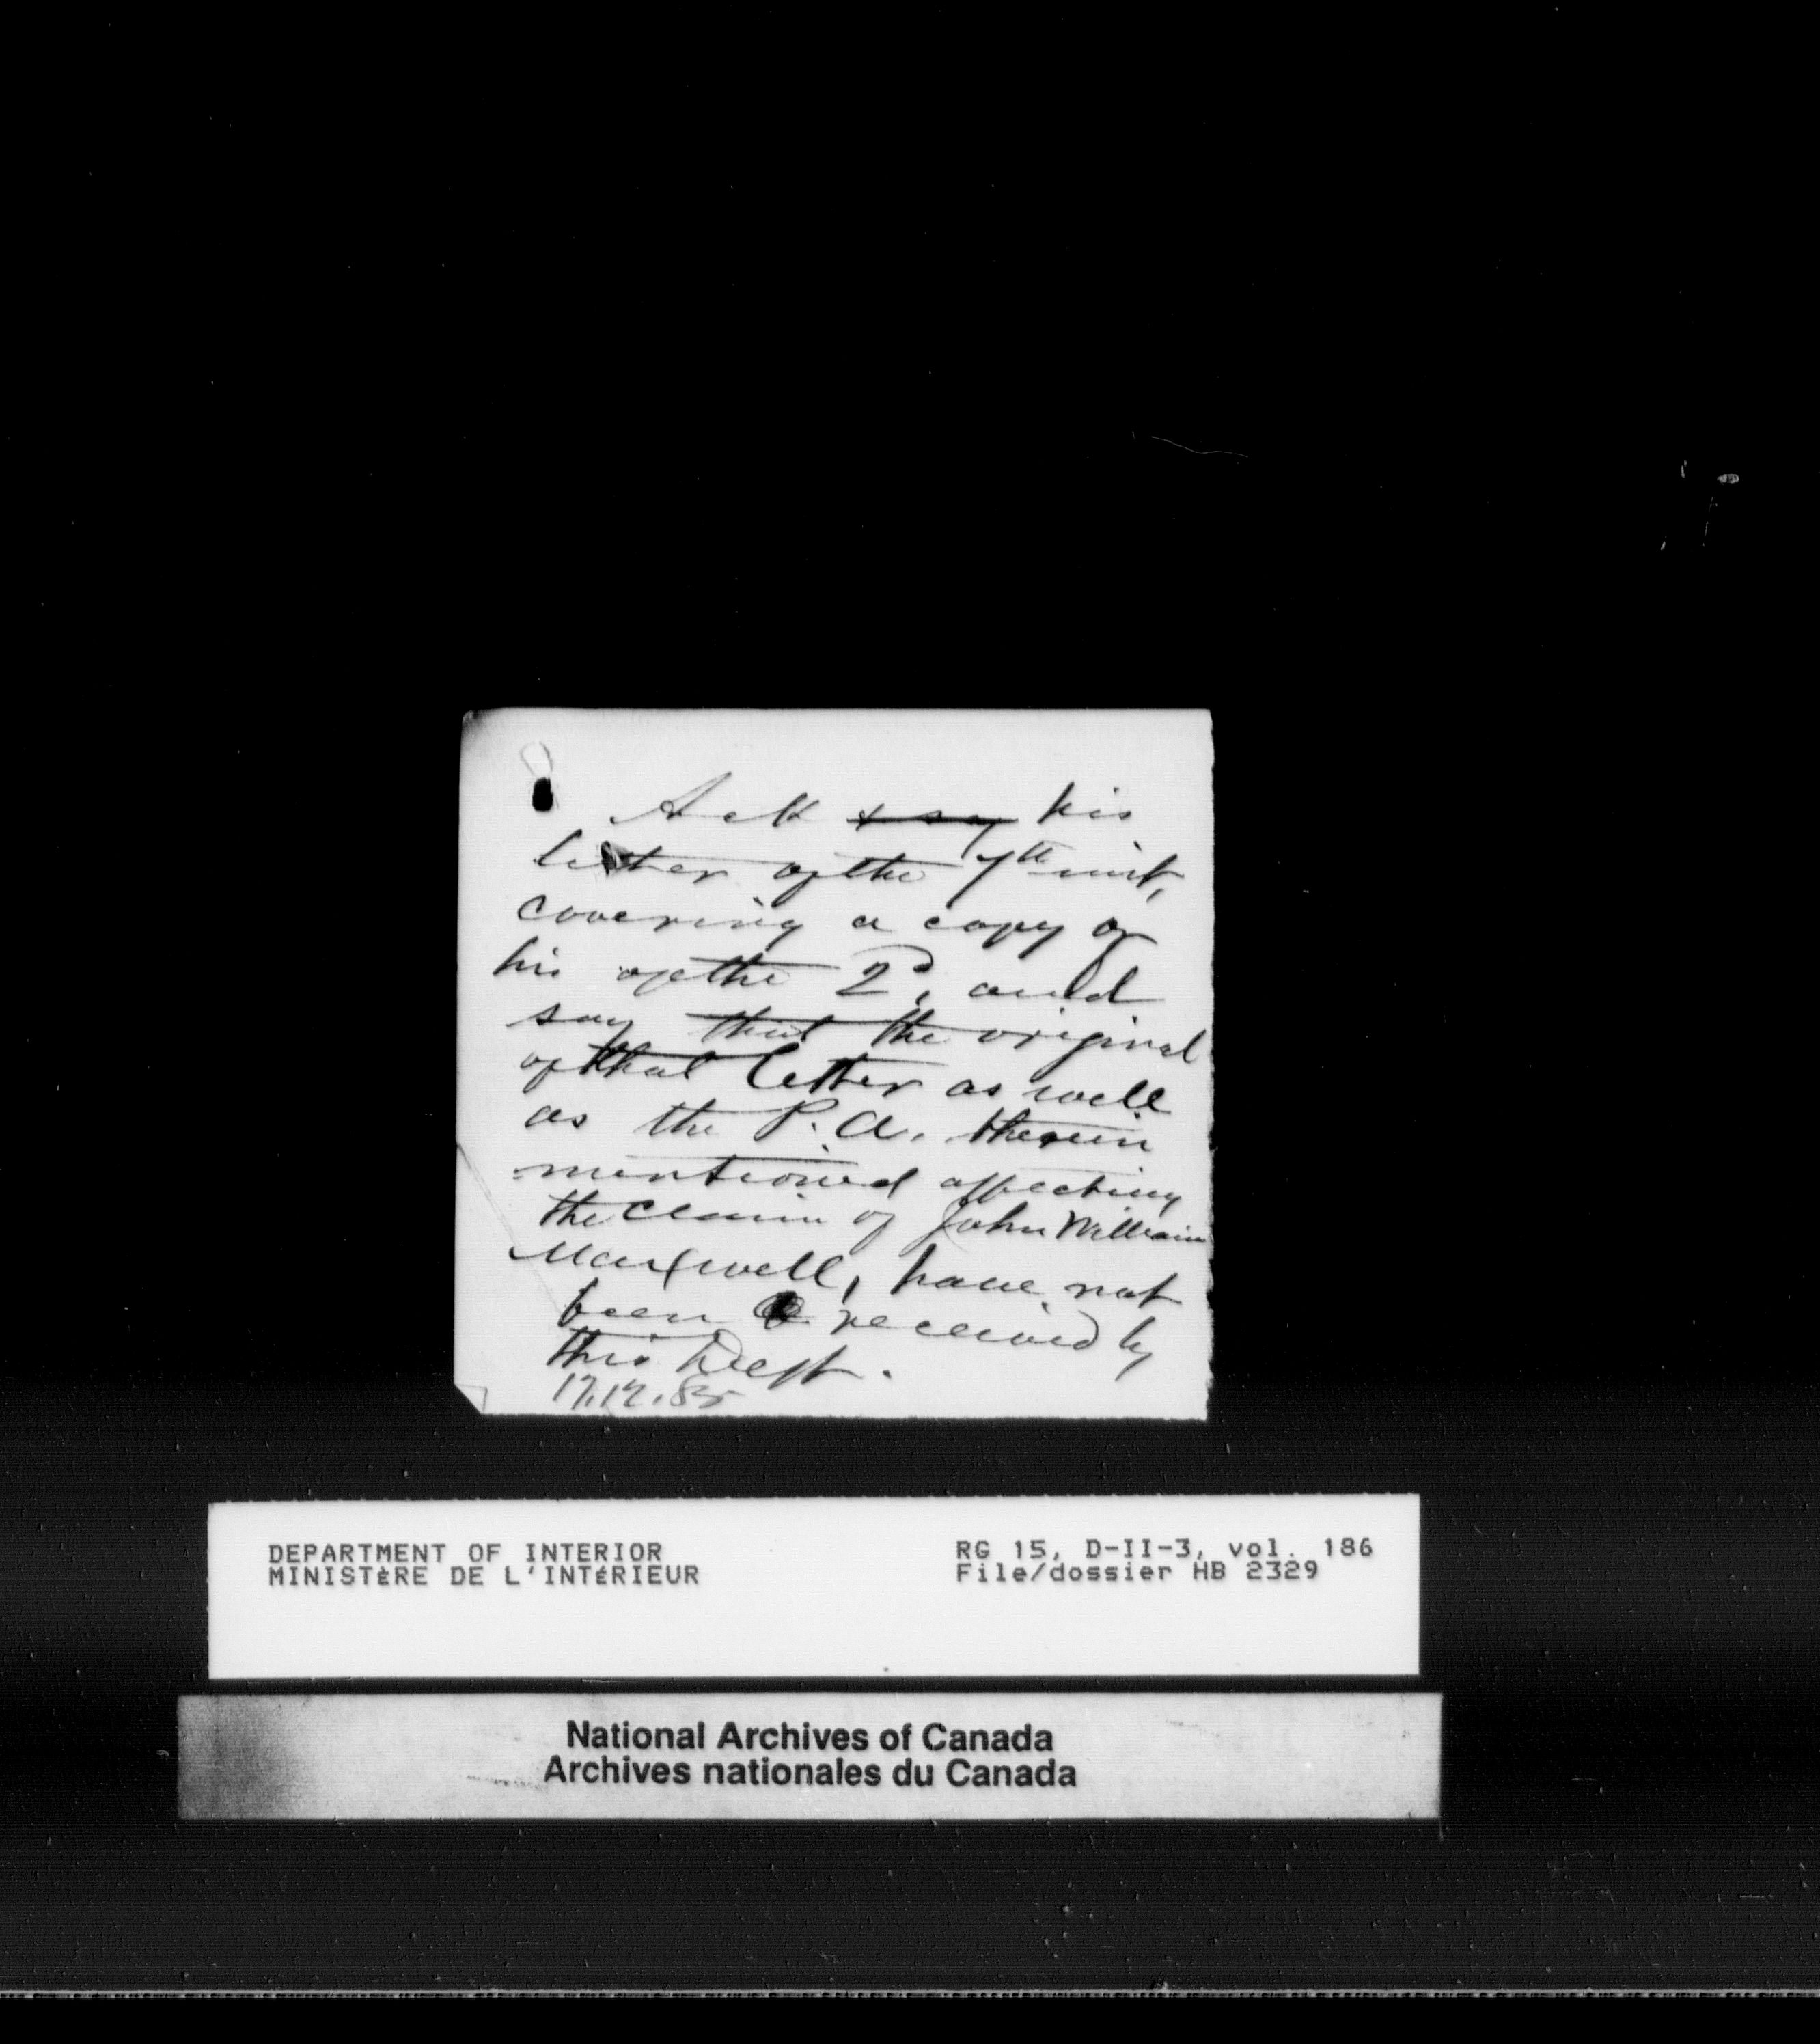 Ack & say his
letter of the 7th inst,
covering a copy of
his of the 2d, and
say that the original
of that letter as well
as the P.A. therein
mentioned affecting
the claim of John William
Maxwell, have not
been received by
this Dept.
17.12.85
DEPARTMENT OF INTERIOR
MINISTÈRE DE L'INTÉRIEUR
RG 15, D-II-3, vol. 186
File/dossier HB 2329
National Archives of Canada
Archives nationales du Canada